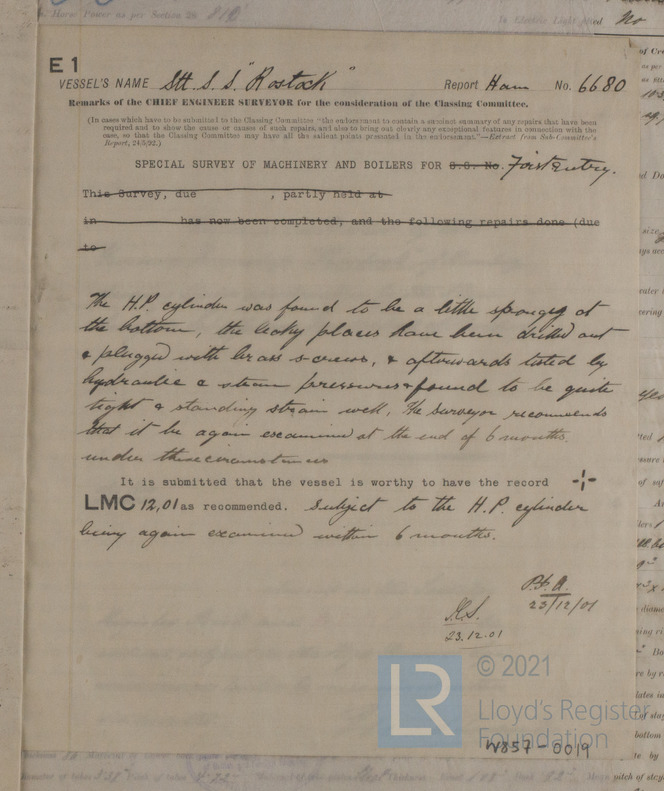 . Horse Power as per Section 28
In Electric Light fitted No
E 1
VESSEL'S NAME Stl. S.S. "Rostock" Report Ham No. 6680
Remarks of the CHIEF ENGINEER SURVEYOR for the consideration of the Classing Committee.
(In cases which have to be submitted to the Classing Committee "the endorsement to contain a succinct summary of any repairs that have been
required and to show the cause or causes of such repairs, and also to bring out clearly any exceptional features in connection with the
case, so that the Classing Committee may have all the salient points presented in the endorsement."—Extract from Sub-Committee's
Report, 24/5/92.)
SPECIAL SURVEY OF MACHINERY AND BOILERS FOR S.S. No. First Entry.
This Survey, due , partly held at
in has now been completed, and the following repairs done (due
to
The H.P. cylinder was found to be a little spongy at
the bottom, the leaky places have been drilled out
& plugged with brass screws, & afterwards tested by
hydraulic & steam pressures & found to be quite
tight & standing strain well. The Surveyor recommends
that it be again examined at the end of 6 months.
under these circumstances
It is submitted that the vessel is worthy to have the record
LMC 12,01 as recommended. Subject to the H.P. cylinder
being again examined within 6 months.
23/12/01
23.12.01
© 2021
LR
Lloyd's Register
Foundation
W857-0019